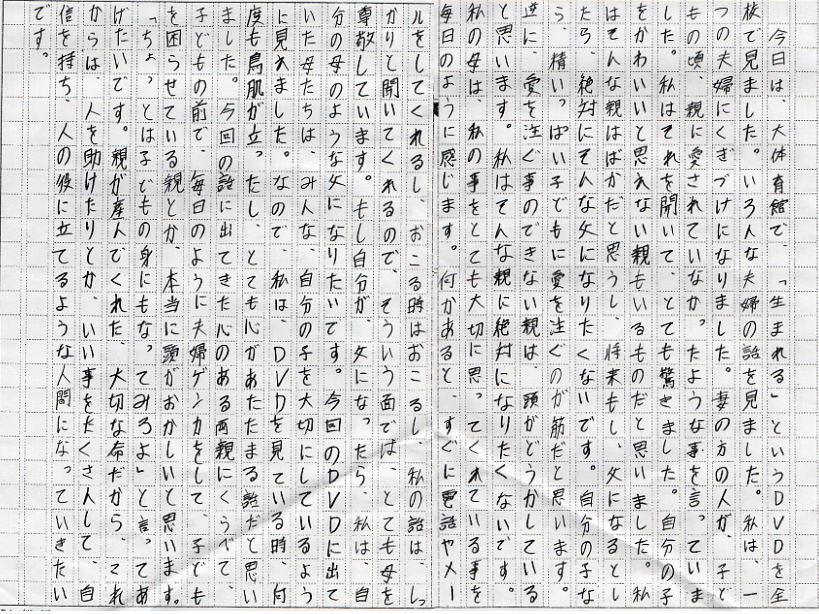 今日は、大体育館で、「生まれる」というDVDを全
校で見ました。いろんな夫婦の話を見ました。私は、一
つの夫婦にくぎづけになりました。妻の方の人が、子ど
もの頃、親に愛されていなかったような事を言っていま
した。私はそれを聞いて、とても驚きました。自分の子
をかわいいと思えない親もいるものだと思いました。私
はそんな親はばかだと思うし、将来もし、父になるとし
たら、絶対にそんな父になりたくないです。自分の子な
ら、精いっぱい子どもに愛を注ぐのが筋だと思います。
逆に、愛を注ぐ事のできない親は、頭がどうかしている
と思います。私はそんな親に絶対になりたくないです。
私の母は、私の事をとても大切に思ってくれている事を
毎日のように感じます。何かあると、すぐに電話やメー
ルをしてくれるし、おこる時はおこるし、私の話は、しっ
かりと聞いてくれるので、そういう面では、とても母を
尊敬しています。もし自分が、父になったら、私は、自
分の母のような父になりたいです。今回のDVDに出て
いた母たちは、みんな、自分の子を大切にしているよう
に見えました。なので、私は、DVDを見ている時、何
度も鳥肌が立ったし、とても心があたたまる話だと思い
ました。今回の話に出てきた心のある両親にくらべて、
子どもの前で、毎日のように夫婦ゲンカをして、子ども
を困らせている親とか、本当に頭がおかしいと思います。
「ちょっとは子どもの身にもなってみろよ」と言ってあ
げたいです。親が産んでくれた、大切な命だから、これ
からは、人を助けたりとか、いい事をたくさんして、自
信を持ち、人の役に立てるような人間になっていきたい
です。